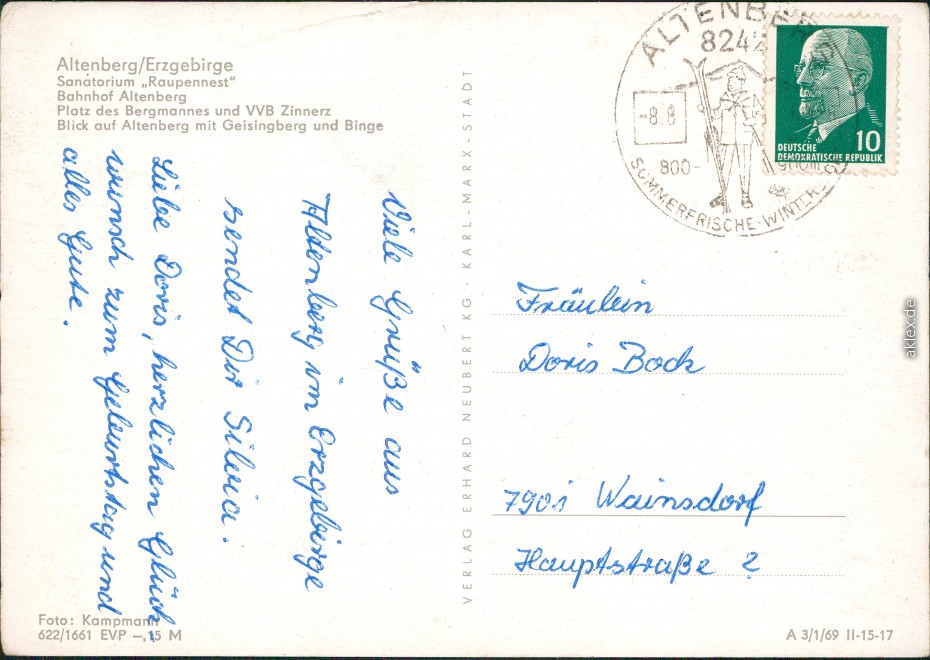 Altenberg/Erzgebirge
Sanatorium „Raupennest"
Bahnhof Altenberg
Platz des Bergmannes und VVB Zinnerz
Blick auf Altenberg mit Geisingberg und Binge
Viele Grüße aus
Altenberg im Erzgebirge
sendet Dir Silvia.
Liebe Doris, herzlichen Glück-
wunsch zum Geburtstag und
alles Gute.
Foto: Kampmann
622/1661 EVP –,15 M
VERLAG ERHARD NEUBERT KG · KARL-MARX-STADT
ALTENBER
8242
-8.8
800-
900m
SOMMERFRISCHE·WINTERS
10
DEUTSCHE
DEMOKRATISCHE REPUBLIK
Fräulein
Doris Bock
7901 Wainsdorf
Hauptstraße 2
A 3/1/69 II-15-17
aklex.de